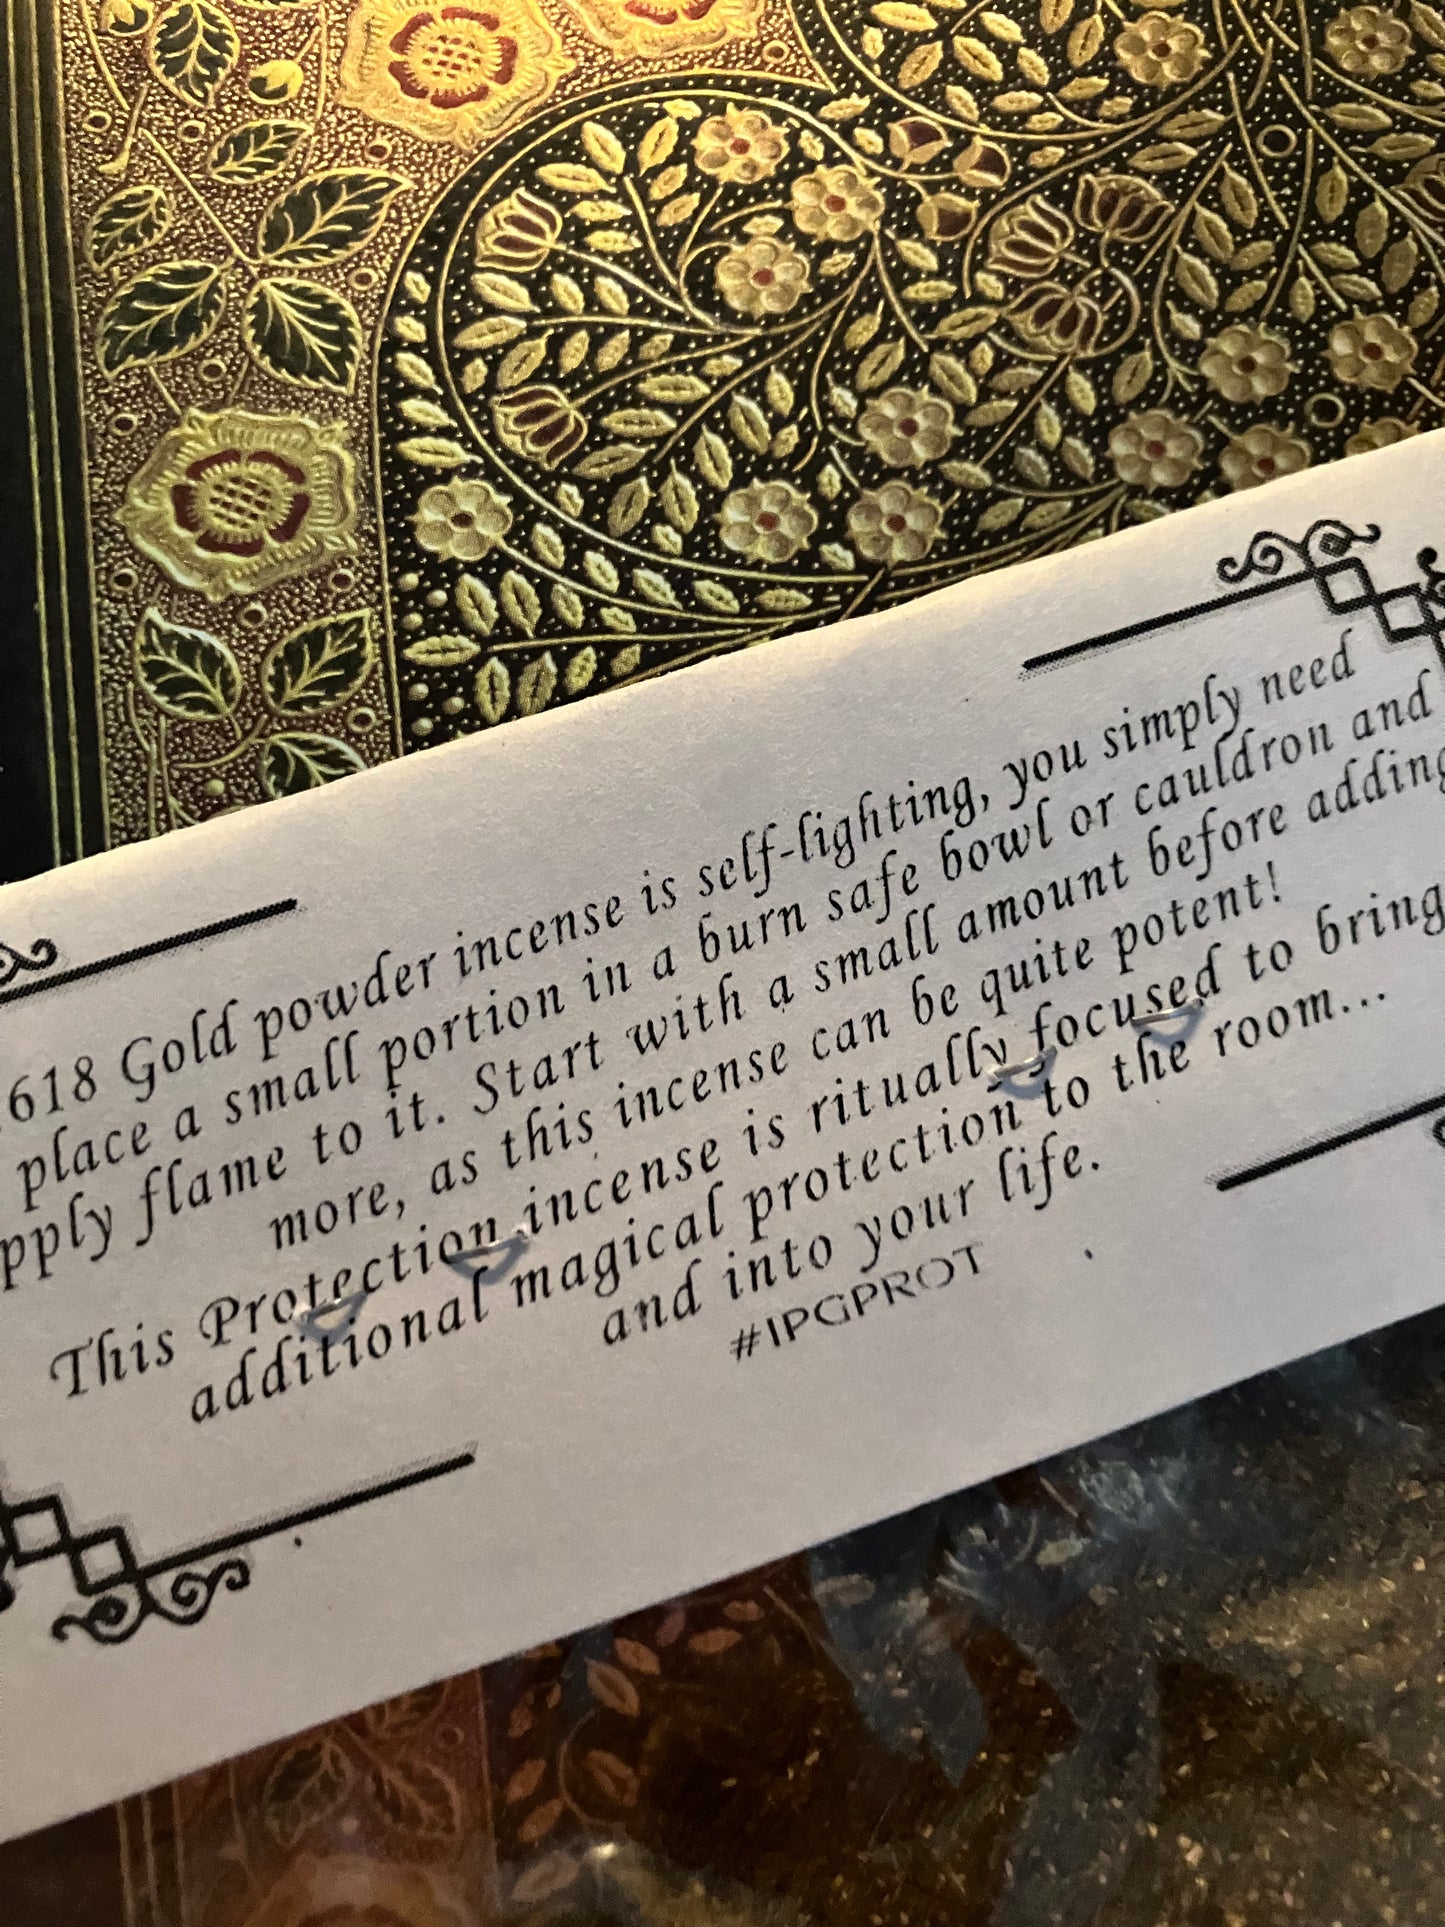 618 Gold powder incense is self-lighting, you simply need
place a small portion in a burn safe bowl or cauldron and
pply flame to it. Start with a small amount before adding
more, as this incense can be quite potent!
This Protection incense is ritually focused to bring
additional magical protection to the room...
and into your life.
#IPGPROT